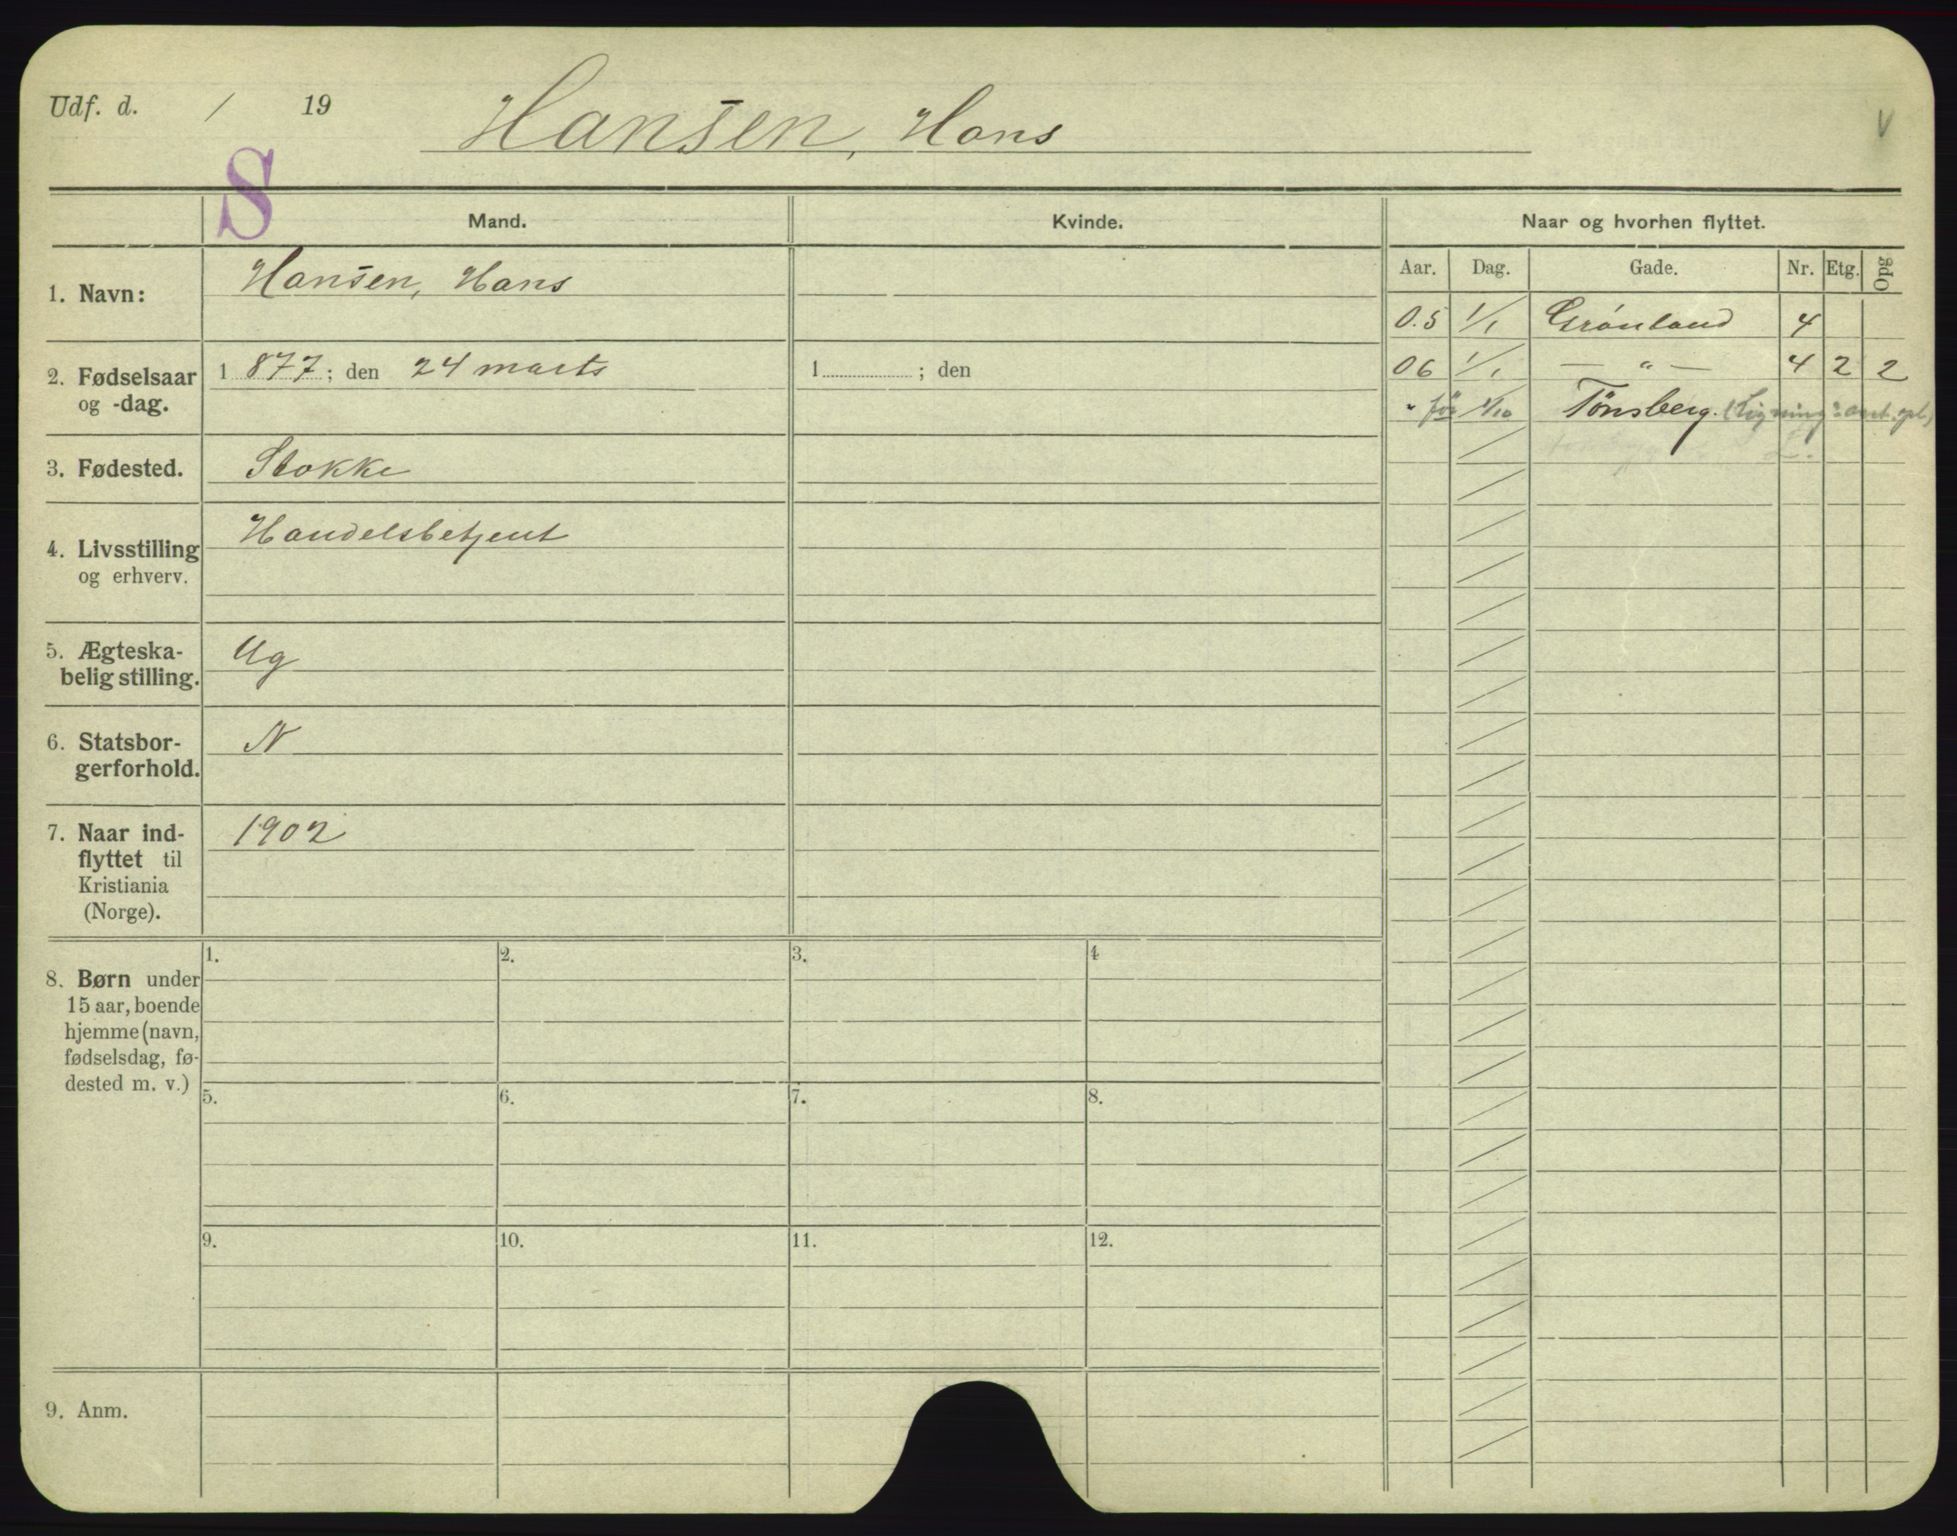 Udf. d. / 19 Hansen, Hans V
S
Mand. Kvinde. Naar og hvorhen flyttet.
Aar. Dag. Gade. Nr. Etg. Opg
1. Navn: Hansen, Hans
05 1/1 Grønland 4
2. Fødselsaar og -dag. 1877; den 24 marts 1 ; den
06 1/1 — " — 4 2 2
" før 1/10 Tønsberg. (Ligning
3. Fødested. Stokke
4. Livsstilling og erhverv. Handelsbetjent
5. Ægteska-
belig stilling. Ug
6. Statsbor-
gerforhold. N
7. Naar ind-
flyttet til
Kristiania
(Norge). 1902
8. Børn under
15 aar, boende
hjemme (navn,
fødselsdag, fø-
dested m. v.)
1. 2. 3. 4
5. 6. 7. 8.
9. 10. 11. 12.
9. Anm.